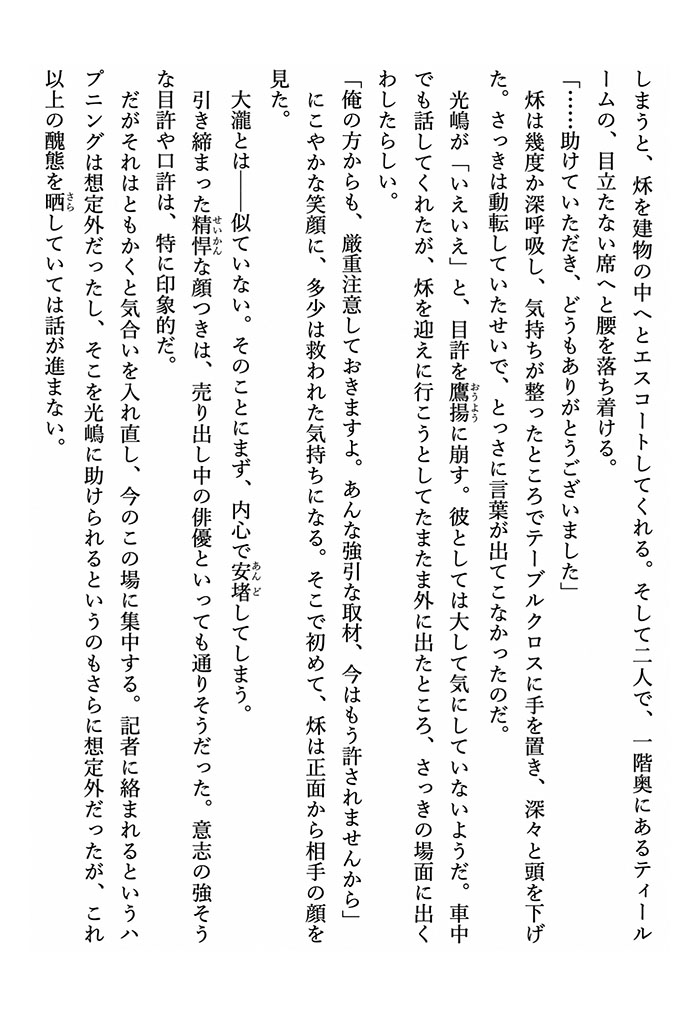 しまうと、秌を建物の中へとエスコートしてくれる。そして二人で、一階奥にあるティール
ームの、目立たない席へと腰を落ち着ける。
「……助けていただき、どうもありがとうございました」
秌は幾度か深呼吸し、気持ちが整ったところでテーブルクロスに手を置き、深々と頭を下げ
た。さっきは動転していたせいで、とっさに言葉が出てこなかったのだ。
光嶋が「いえいえ」と、目許を鷹揚に崩す。彼としては大して気にしていないようだ。車中
でも話してくれたが、秌を迎えに行こうとしてたまたま外に出たところ、さっきの場面に出く
わしたらしい。
「俺の方からも、厳重注意しておきますよ。あんな強引な取材、今はもう許されませんから」
にこやかな笑顔に、多少は救われた気持ちになる。そこで初めて、秌は正面から相手の顔を
見た。
大瀧とは――似ていない。そのことにまず、内心で安堵してしまう。
引き締まった精悍な顔つきは、売り出し中の俳優といっても通りそうだった。意志の強そう
な目許や口許は、特に印象的だ。
だがそれはともかくと気合いを入れ直し、今のこの場に集中する。記者に絡まれるというハ
プニングは想定外だったし、そこを光嶋に助けられるというのもさらに想定外だったが、これ
以上の醜態を晒していては話が進まない。